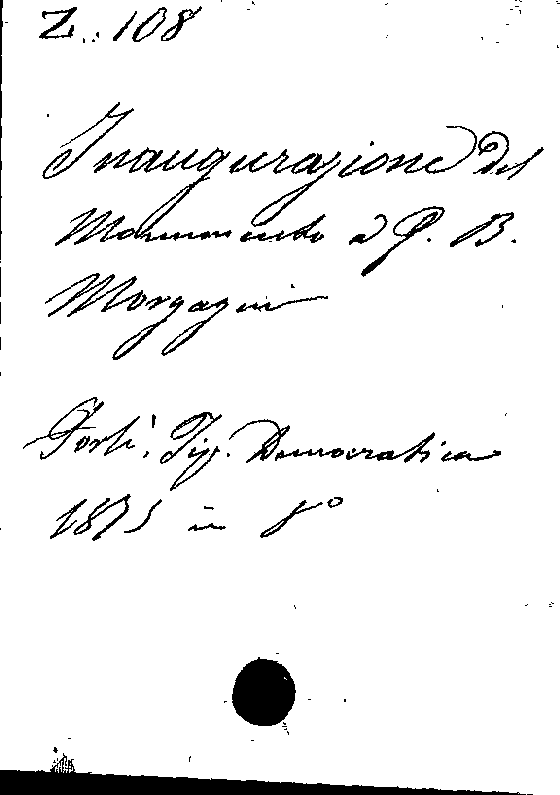 Z. 108
Inaugurazione del
Monumento a G. B.
Morgagni
Forlì, Tip. Democratica
1875 in 8°